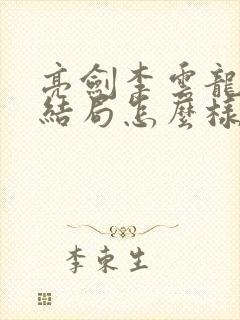 亮劍李雲龍
結局怎麼樣
李東生